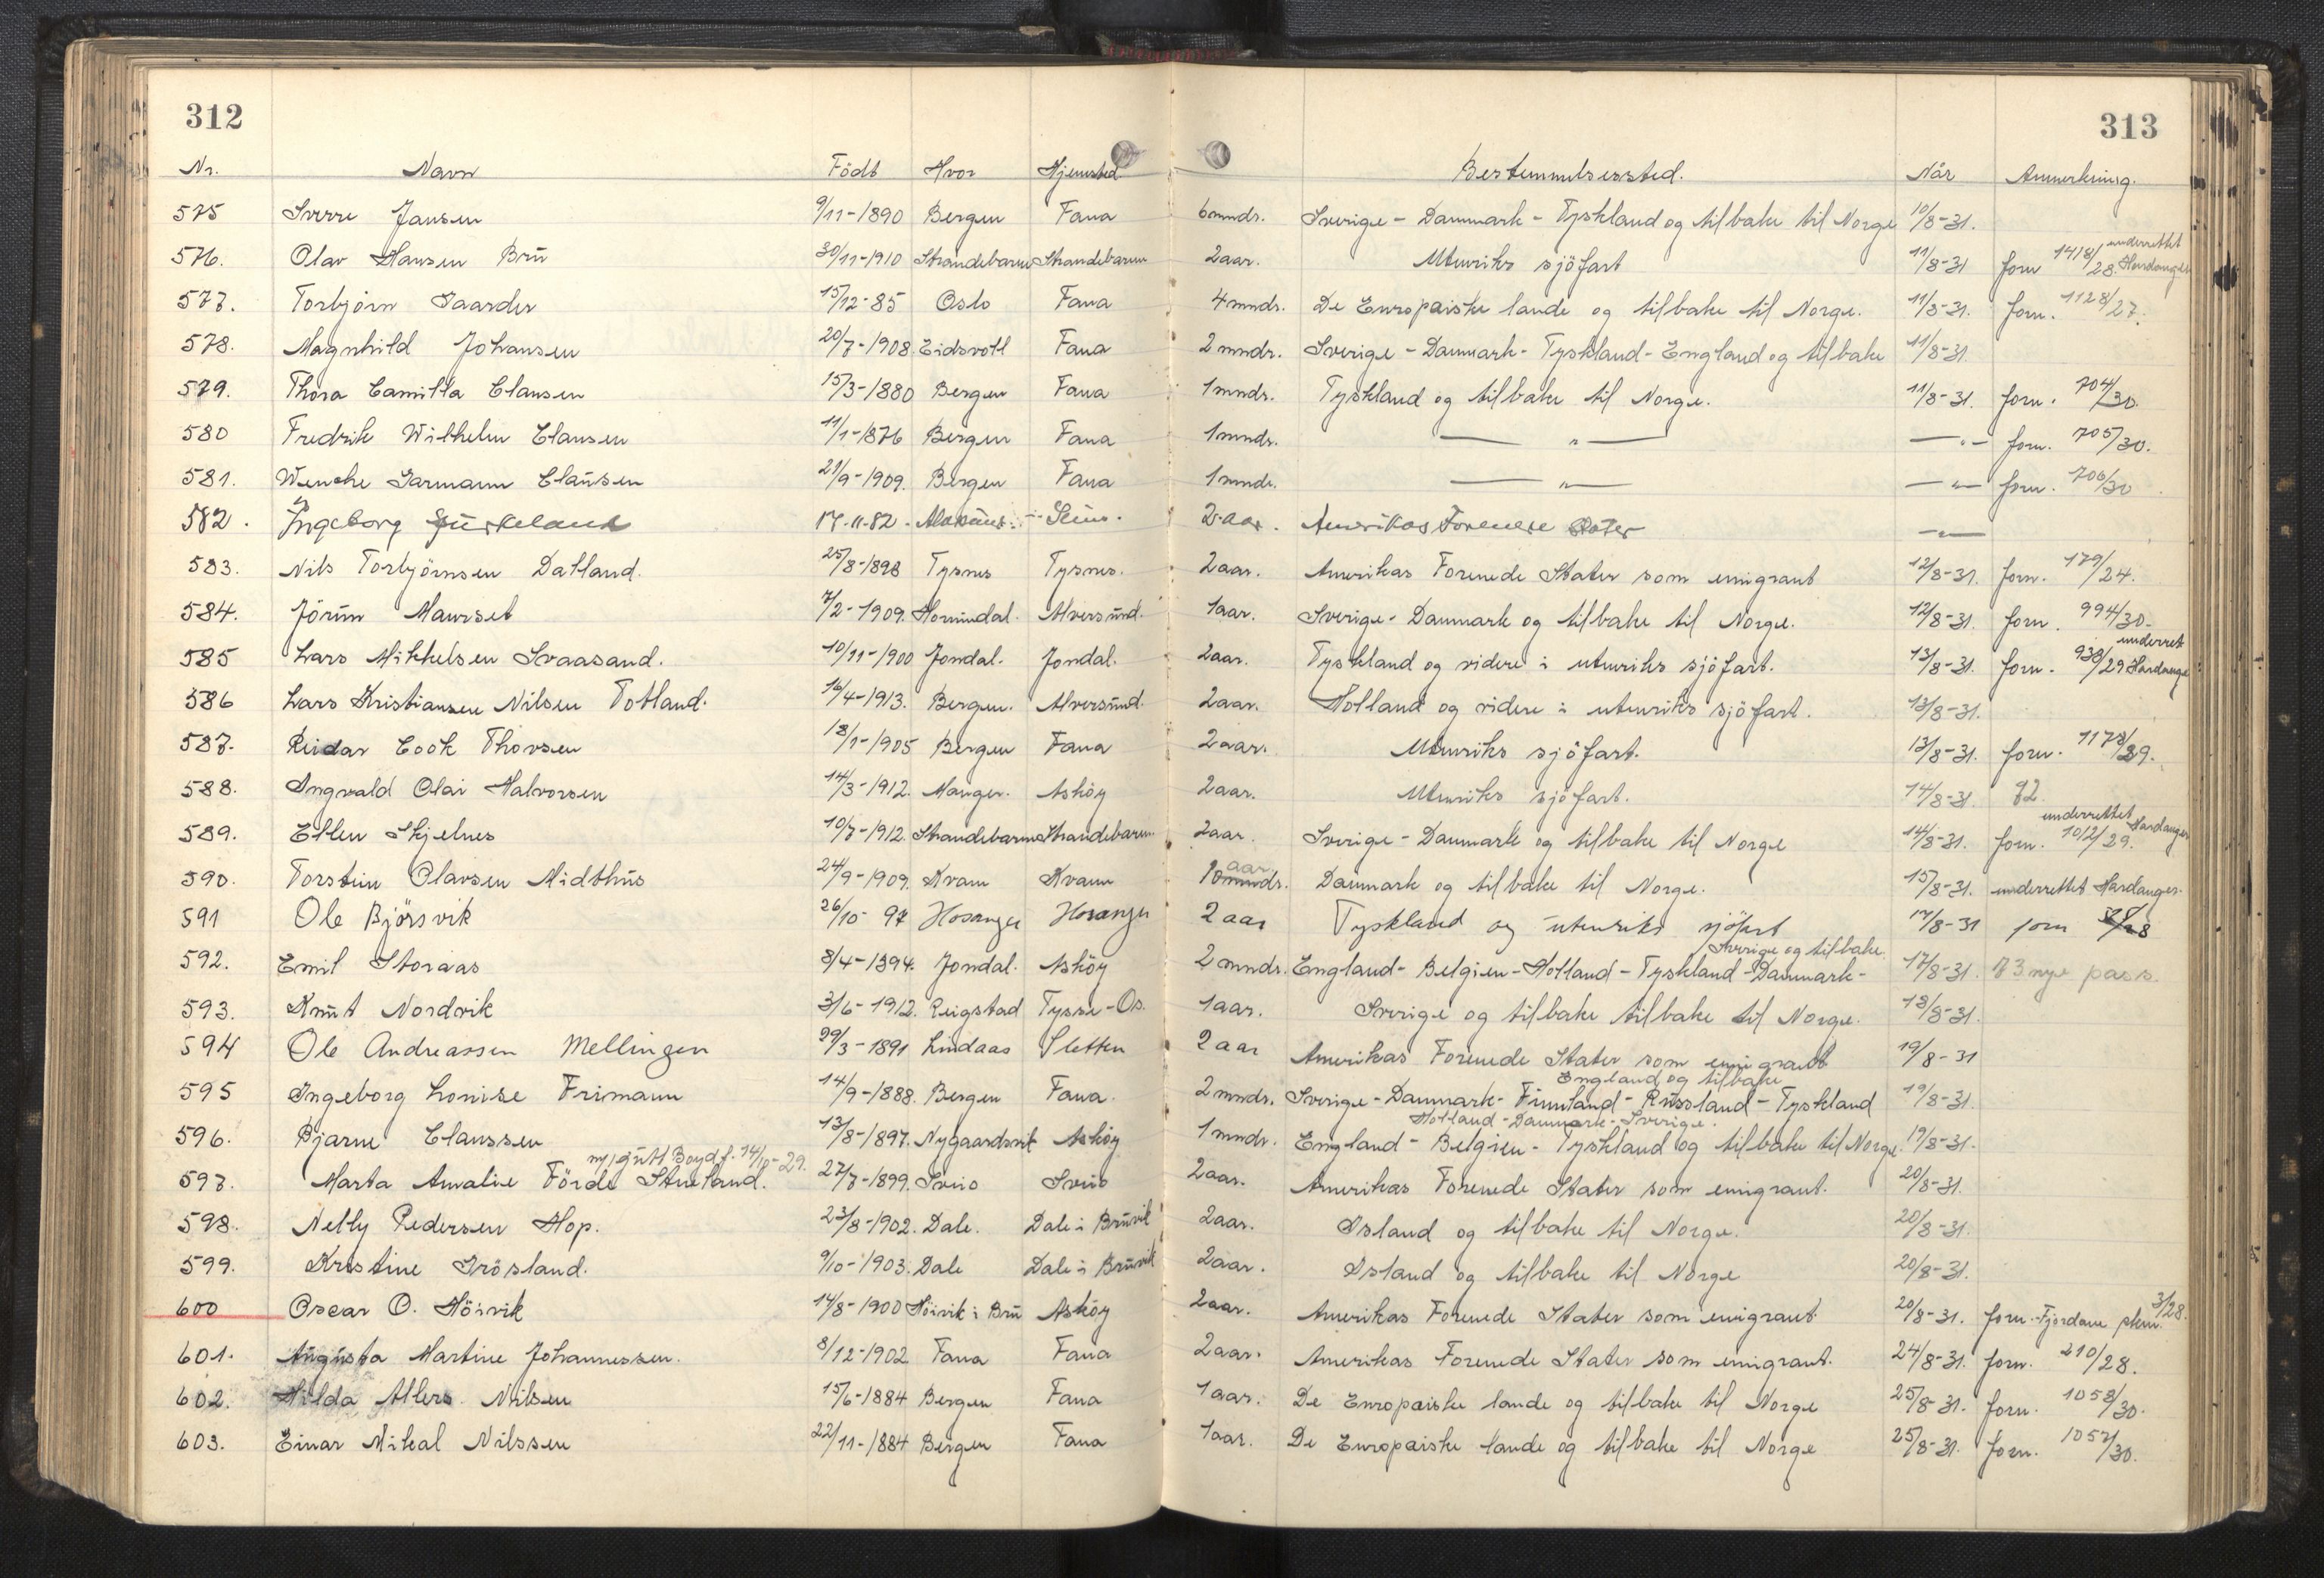 312
313
Nr. Navn Födt Hvor Hjemsted Bestemmelsessted. Når Anmerkning.
575 Sverre Jansen 9/11-1890 Bergen Fana 6 mndr. Sverige - Danmark - Tyskland og tilbake til Norge 10/8-31.
576. Olav Hansen Brü 30/11-1910 Strandebarm Strandebarm 2 aar. Utenriks sjöfart 11/8-31 forn 1418/28. underrettet Hardanger
577. Torbjörn Gaarder 15/12-85 Oslo Fana 4 mndr. De Europæiske lande og tilbake til Norge. 11/8-31. forn. 1128/27.
578. Magnhild Johansen 20/7-1908. Eidsvoll Fana 2 mndr. Sverige - Danmark - Tyskland - England og tilbake 11/8-31.
579. Thora Camilla Clausen 15/3-1880 Bergen Fana 1 mndr. Tyskland og tilbake til Norge. 11/8-31. forn. 704/30.
580 Fredrik Wilhelm Clausen 11/1-1876 Bergen Fana 1 mndr. — " — — " — forn. 705/30.
581. Wenche Garmann Clausen 21/9-1909. Bergen Fana 1 mndr. — " — — " — forn. 706/30
582. Ingeborg 17-11-82. 2 aar. Amerikas Forenede Stater — " —
583. Nils Torbjörnsen Dalland. 25/8-1898 Tysnes Tysnes. 2 aar. Amerikas Forenede Stater som emigrant 12/8-31. forn. 179/24.
584. Jörün Maurset 7/2-1909. Hornindal. Alversünd. 1 aar. Sverige - Danmark og tilbake til Norge. 12/8-31. forn. 994/30.
585 Lars Mikkelsen Svaasand. 10/11-1900 Jondal. Jondal. 2 aar. Tyskland og videre i utenriks sjöfart. 13/8-31. forn. 938/29 underret Hardange
586 Lars Kristiansen Nilsen Totland. 16/4-1913. Bergen. Alversünd. 2 aar. Holland og videre i utenriks sjöfart. 13/8-31.
587. Reidar Cook Thorsen 18/1-1905 Bergen Fana 2 aar. Utenriks sjöfart. 13/8-31. forn. 1178/29.
588. Ingvald Olai Halvorsen 14/3-1912. Manger. Asköy 2 aar. Utenriks sjöfart. 14/8-31.
589. Ellen Skjelnes 10/7-1912. Strandebarm Strandebarm 2 aar. Sverige - Danmark og tilbake til Norge 14/8-31. forn. 1012/29. underrettet Hardanger
590. Torstein Olavsen Midthüs 24/9-1909. Kvam Kvam aar Danmark og tilbake til Norge. 15/8-31. underrettet Hardanger.
591 Ole Björsvik 26/10-97 Hosanger Hosanger 2 aar Tyskland og utenriks sjöfart 17/8-31 forn
Sverige og tilbake.
592. Emil Storaas 8/4-1894. Jondal. Asköy 2 mndr. England - Belgien - Holland - Tyskland - Danmark - 17/8-31. nye pass.
593. Knüt Nordvik 3/6-1912. Reigstad Tysse-Os. 1 aar. Sverige og tilbake tilbake til Norge. 18/8-31.
594 Ole Andreassen Mellingen 29/3-1891 Lindaas Sletten 2 aar Amerikas Forenede Stater som emigrant 19/8-31
England og tilbake
595 Ingeborg Louise Frimann 14/9-1888. Bergen Fana. 2 mndr. Sverige - Danmark - Finnland - Russland - Tyskland 19/8-31.
Holland - Danmark - Sverige.
596. Bjarne Claussen 13/8-1897. Nygaardsvik Asköy 1 mndr. England - Belgien - Tyskland og tilbake til Norge. 19/8-31.
14/10-29.
597. Marta Amalie Förde Stueland. 27/7-1899. Sveio Sveio 2 aar. Amerikas Forenede Stater som emigrant. 20/8-31.
598. Nelly Pedersen Hop. 23/8-1902. Dale. Dale i Brüvik 2 aar. Island og tilbake til Norge. 20/8-31.
599. Kristine Grösland. 9/10-1903. Dale Dale i Brüvik 2 aar. Island og tilbake til Norge 20/8-31.
600 Oscar O. Höivik 14/8-1900 Höivik i Brü Asköy 2 aar. Amerikas Forenede Stater som emigrant. 20/8-31. forn. Fjordane pkm. 3/28.
601. Augusta Martine Johannessen. 8/12-1902 Fana Fana 2 aar. Amerikas Forenede Stater som emigrant. 24/8-31. forn. 210/28.
602. Hilda Ahlers Nilsen 15/6-1884 Bergen Fana 1 aar. De Europæiske lande og tilbake til Norge 25/8-31. forn. 1058/30.
603. Einar Mikal Nilssen 22/11-1884 Bergen Fana 1 aar. De Europæiske lande og tilbake til Norge 25/8-31. forn. 1057/30.